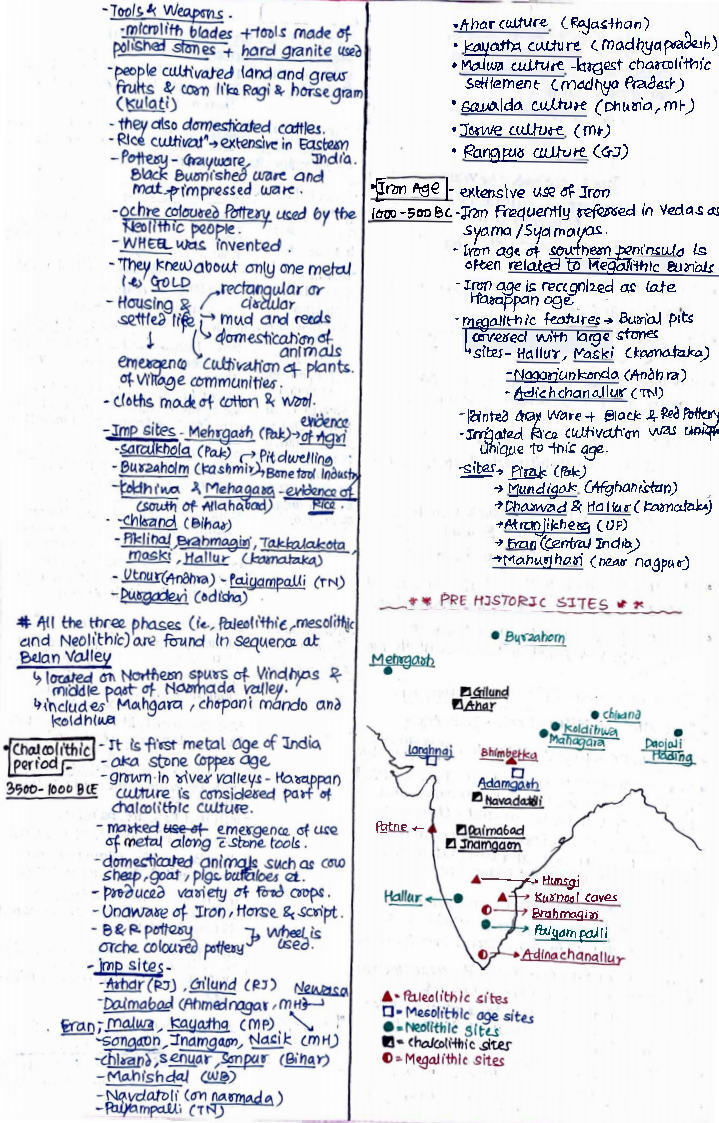 - Tools & Weapons -
- microlith blades + tools made of
polished stones + hard granite used
- people cultivated land and grew
fruits & corn like Ragi & horse gram
(Kulati)
- they also domesticated cattles.
- Rice cultivatⁿ → extensive in Eastern
India.
- Pottery - Grayware,
Black Burnished ware and
mat impressed ware.
- ochre coloured Pottery used by the
Neolithic people.
- WHEEL was invented.
- They knew about only one metal
i.e. GOLD
- Housing & settled life
→ rectangular or
circular
→ mud and reeds
→ domestication of
animals
cultivation of plants.
↓
emergence
of village communities.
- cloths made of cotton & wool.
- Imp sites - Mehrgarh (Pak) → evidence
of Agri
- Saraikhola (Pak) → Pit dwelling
- Burzaholm (Kashmir) → Bone tool Industry
- Koldhiwa & Mehagara - evidence of
(south of Allahabad) Rice.
- Chirand (Bihar)
- Piklihal, Brahmagiri, Takkalakota,
maski, Hallur (Karnataka)
- Utnur (Andhra) - Paiyampalli (TN)
- Durgadevi (odisha)
# All the three phases (i.e., Paleolithic, mesolithic
and Neolithic) are found in sequence at
Belan Valley
↳ located on Northern spurs of Vindhyas &
middle part of Narmada valley.
↳ includes Mahgara, chopani mando and
koldhiwa
• Chalcolithic
period -
3500-1000 BCE
- It is first metal age of India
- aka stone copper age
- grown in river valleys - Harappan
culture is considered part of
chalcolithic culture.
- marked use of emergence of use
of metal along c̄ stone tools.
- domesticated animals such as cow
sheep, goat, pigs buffaloes et.
- produced variety of food crops.
- Unaware of Iron, Horse & script.
- B & R pottery
orche coloured pottery → Wheel is
used.
- Imp sites -
- Arhar (RJ), Gilund (RJ) Newasa
- Daimabad (Ahmednagar, MH)
Eran; Malwa, Kayatha (MP)
- Songaon, Inamgaon, Nasik (MH)
- Chirand, Senuar, Sonpur (Bihar)
- Mahishdal (WB)
- Navdatoli (on narmada)
- Paiyampalli (TN)
• Ahar culture (Rajasthan)
• Kayatha culture (Madhyapradesh)
• Malwa culture - largest charcolithic
settlement (Madhya Pradesh)
• Savalda culture (Dhulia, MH)
• Jorwe culture (MH)
• Rangpur culture (GJ)
• Iron Age
1000-500 BC
- extensive use of Iron
- Iron frequently referred in Vedas as
Syama/Syamayas.
- Iron age of southern peninsula is
often related to Megalithic Burials
- Iron age is recognized as late
Harappan age
- megalithic features → Burial pits
covered with large stones
↳ sites - Hallur, Maski (Karnataka)
- Nagarjunkonda (Andhra)
- Adichchanallur (TN)
- Painted Gray Ware + Black & Red Pottery
- Irrigated Rice cultivation was unique
unique to this age.
- sites → Pirak (Pak)
→ Mundigak (Afghanistan)
→ Dharwad & Hallur (Karnataka)
→ Atranjikhera (UP)
→ Eran (Central India)
→ Mahurjhari (near nagpur)
** PRE HISTORIC SITES **
Burzahom
Mehrgarh
Gilund
Ahar
chirand
Koldihwa
Mahagara
Daojali
Hading
Langhnaj
Bhimbetka
Adamgarh
Navadatoli
Patne
Daimabad
Inamgaon
Hunsgi
Hallur
Kurnool caves
Brahmagiri
Paiyampalli
Adinachanallur
▲ = Paleolithic sites
□ = Mesolithic age sites
● = Neolithic sites
◩ = chalcolithic sites
◐ = Megalithic sites